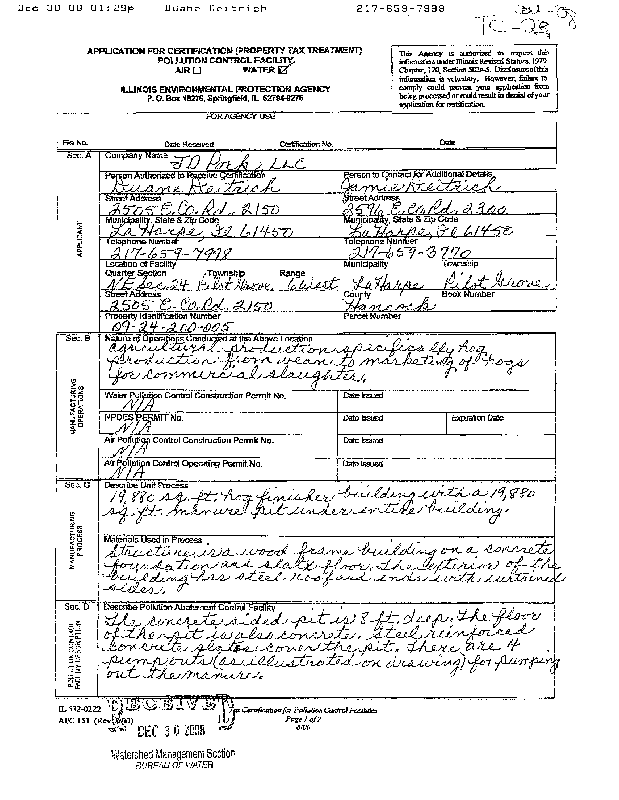 Dec 30 08 01:29p Duane Reitrich 217-659-7998
TC-
APPLICATION FOR CERTIFICATION (PROPERTY TAX TREATMENT)
POLLUTION CONTROL FACILITY
AIR ☐ WATER ☑
ILLINOIS ENVIRONMENTAL PROTECTION AGENCY
P. O. Box 19276, Springfield, IL 62794-9276
This Agency is authorized to request this
information under Illinois Revised Statutes, 1979
Chapter, 120, Section 502a-5. Disclosure of this
information is voluntary. However, failure to
comply could prevent your application from
being processed or could result in denial of your
application for certification.
FOR AGENCY USE
File No. Date Received Certification No. Date
Sec. A
APPLICANT
Company Name
JD Pork, LLC
Person Authorized to Receive Certification Person to Contact for Additional Details
Duane Reitrich Jamie Reitrich
Street Address Street Address
2505 E. Co. Rd. 2150 2596 E. Co. Rd. 2300
Municipality, State & Zip Code Municipality, State & Zip Code
LaHarpe, IL 61450 LaHarpe, IL 61450
Telephone Number Telephone Number
217-659-7998 217-659-3770
Location of Facility Municipality Township
Quarter Section Township Range
NE Sec. 24 Pilot Grove 6 West LaHarpe Pilot Grove
Street Address County Book Number
2505 E. Co. Rd. 2150 Hancock
Property Identification Number Parcel Number
09-24-200-005
Sec. B
MANUFACTURING
OPERATIONS
Nature of Operations Conducted at the Above Location
agricultural production specifically hog
production from wean to marketing of hogs
for commercial slaughter.
Water Pollution Control Construction Permit No. Date Issued
N/A
NPDES PERMIT No. Date Issued Expiration Date
N/A
Air Pollution Control Construction Permit No. Date Issued
N/A
Air Pollution Control Operating Permit No. Date Issued
N/A
Sec. C
MANUFACTURING
PROCESS
Describe Unit Process
19,880 sq. ft. hog finisher building with a 19,880
sq. ft. manure pit under entire building.
Materials Used in Process
Structure is a wood frame building on a concrete
foundation and slat floor. The of the
building has steel roof and ends with curtained
sides.
Sec. D
POLLUTION CONTROL
FACILITY DESCRIPTION
Describe Pollution Abatement Control Facility
The concrete sided pit is 8 ft. deep. The floor
of the pit is also concrete. Steel reinforced
concrete slats cover the pit. There are 4
pump outs (as illustrated on drawing) for pumping
out the manure.
IL 532-0222
APC 151 (Rev.
for Certification for Pollution Control Facilities
Page 1 of 2
RECEIVED
DEC 30 2008
Watershed Management Section
BUREAU OF WATER